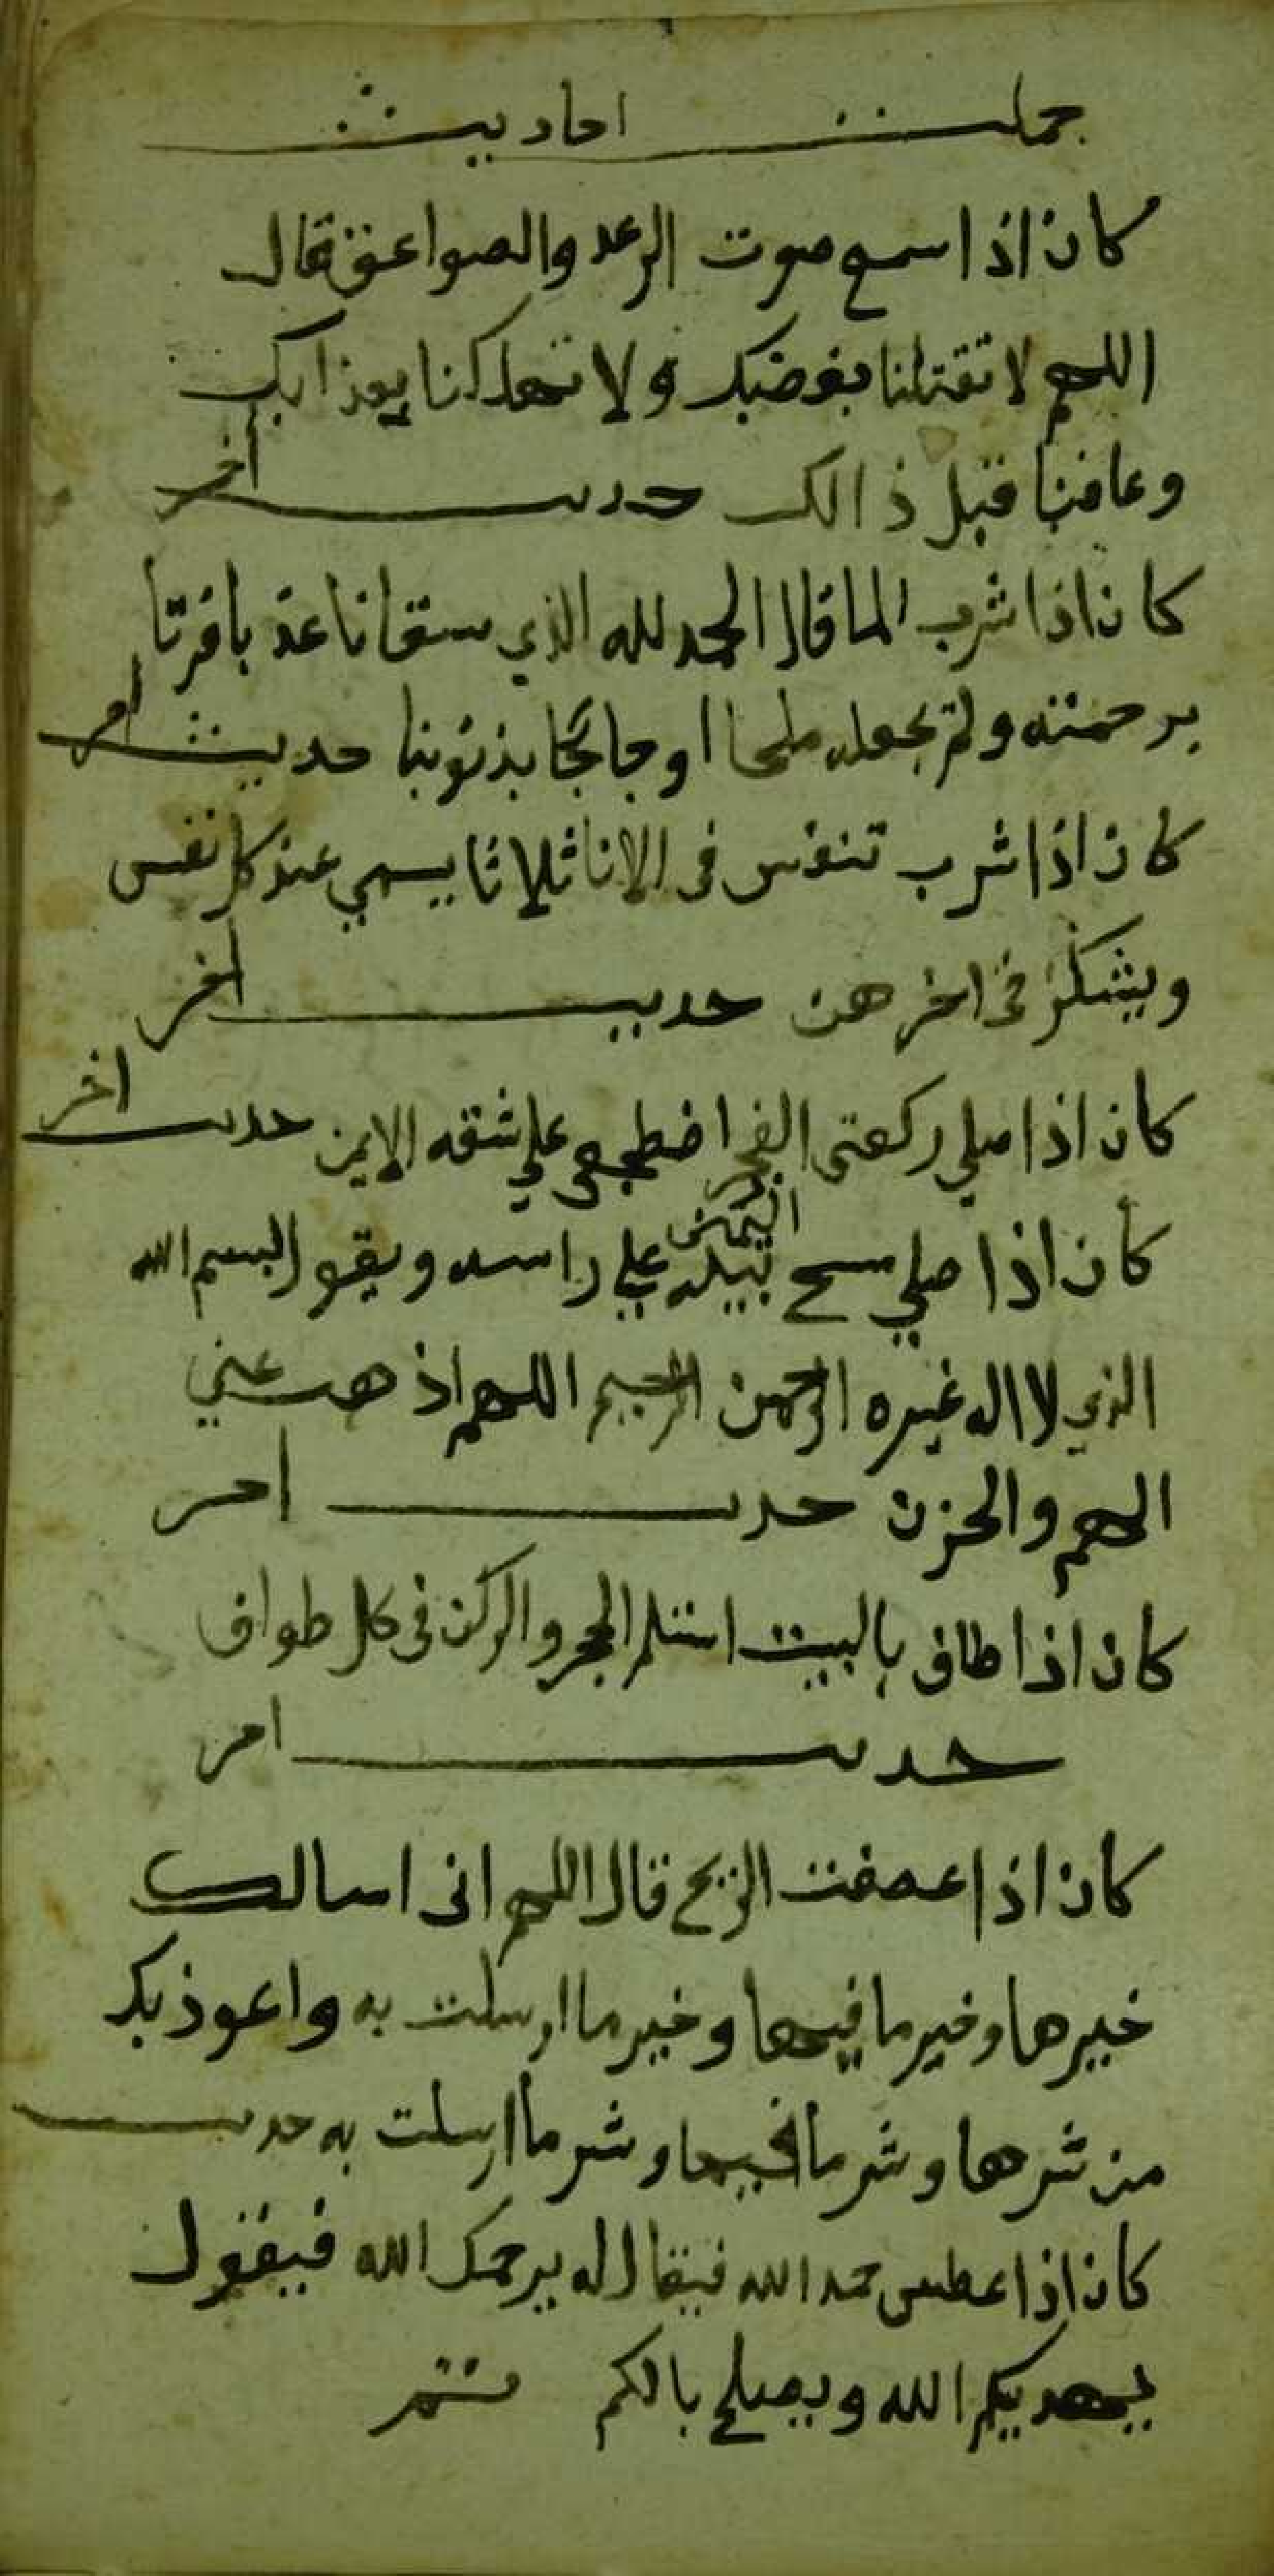 جملة احاديث
كان اذا سمع صوت الرعد والصواعق قال
اللهم لا تقتلنا بغضبك ولا تهلكنا بعذابك
وعافنا قبل ذالك حديث اخر
كان اذا شرب الما قال الحمد لله الذي سقانا عذبا فرتا
برحمته ولم يجعله ملحا اوجاجا بذنوبنا حديث اخر
كان اذا شرب تنفس في الانا ثلاثا يسمي عند كل نفس
ويشكر في اخرهن حديث اخر
كان اذا صلي ركعتي الفجر اضطجع علي شقه الايمن حديث اخر
كان اذا صلي مسح بيده اليمنى علي راسه ويقول بسم الله
الذي لا اله غيره الرحمن الرحيم اللهم اذهب عني
الهم والحزن حديث اخر
كان اذا طاف بالبيت استلم الحجر والركن في كل طواف
حديث اخر
كان اذا عصفت الريح قال اللهم اني اسالك
خيرها وخير ما فيها وخير ما ارسلت به واعوذ بك
من شرها وشر ما فيها وشر ما ارسلت به حديث
كان اذا عطس حمد الله فيقال له يرحمك الله فيقول
يهديكم الله ويصلح بالكم تتم